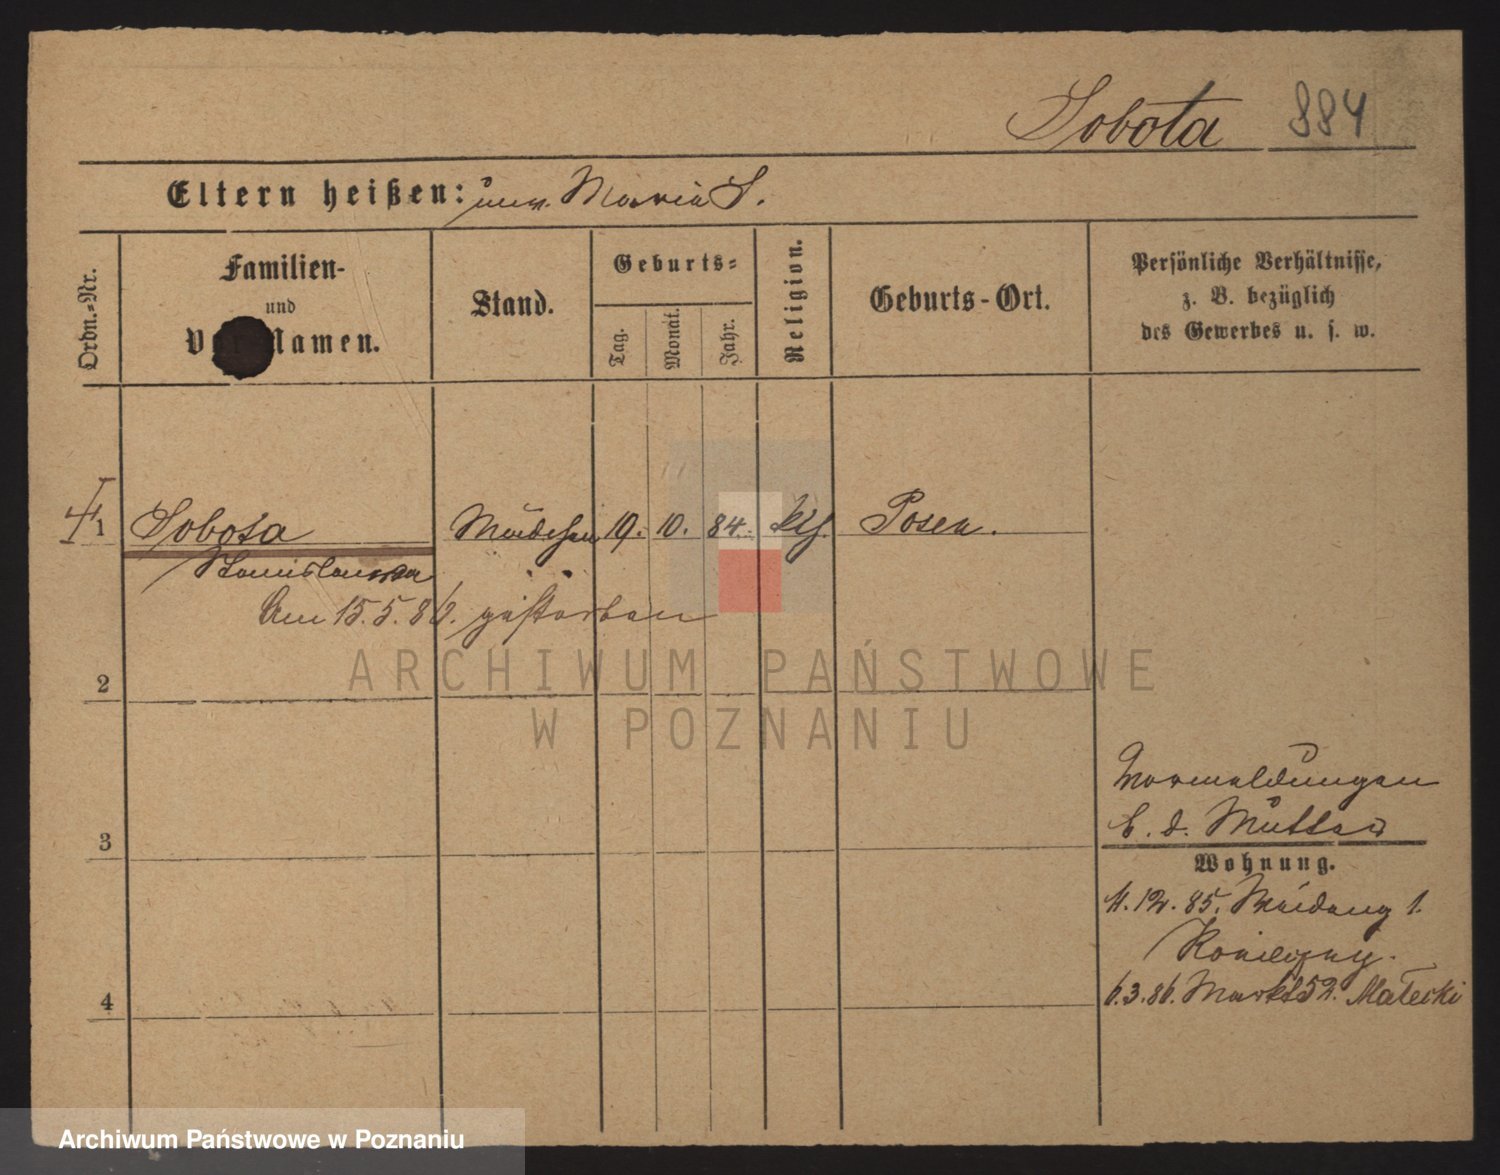 Sobota 884
Eltern heißen: unv. Maria S.
Ordn.-Nr.
Familien-
und
Vor-Namen.
Stand.
Geburts-
Tag.
Monat.
Jahr.
Religion.
Geburts-Ort.
Persönliche Verhältnisse,
z. B. bezüglich
des Gewerbes u. s. w.
1 Sobota Mädchen 19. 10. 84. kth. Posen.
Stanislawa
Am 15.5.86. gestorben
2
3
4
Vormeldungen
b. d. Mutter
Wohnung.
11.12.85. 1.
6.3.86. Markt 52. Małecki
ARCHIWUM PAŃSTWOWE
W POZNANIU
Archiwum Państwowe w Poznaniu